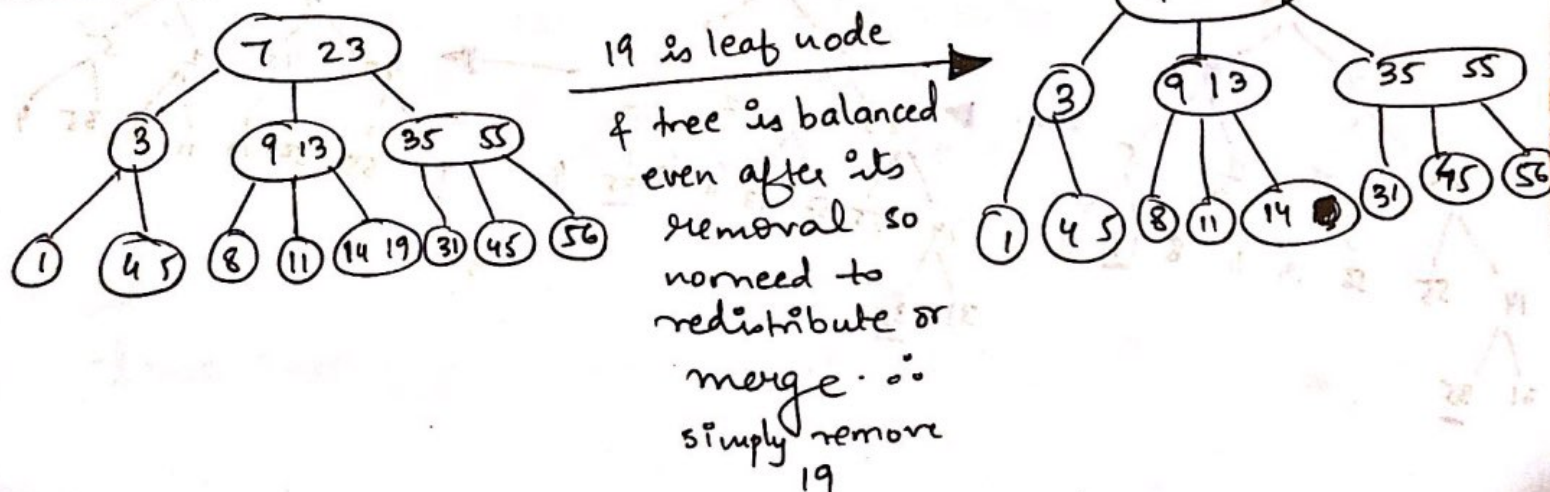 7 23
3
9 13
35 55
1
4 5
8
11
14 19
31
45
56
19 is leaf node
& tree is balanced
even after its
removal so
norneed to
redistribute or
merge. ∴
simply remove
19
3
9 13
35 55
1
4 5
8
11
14
31
45
56